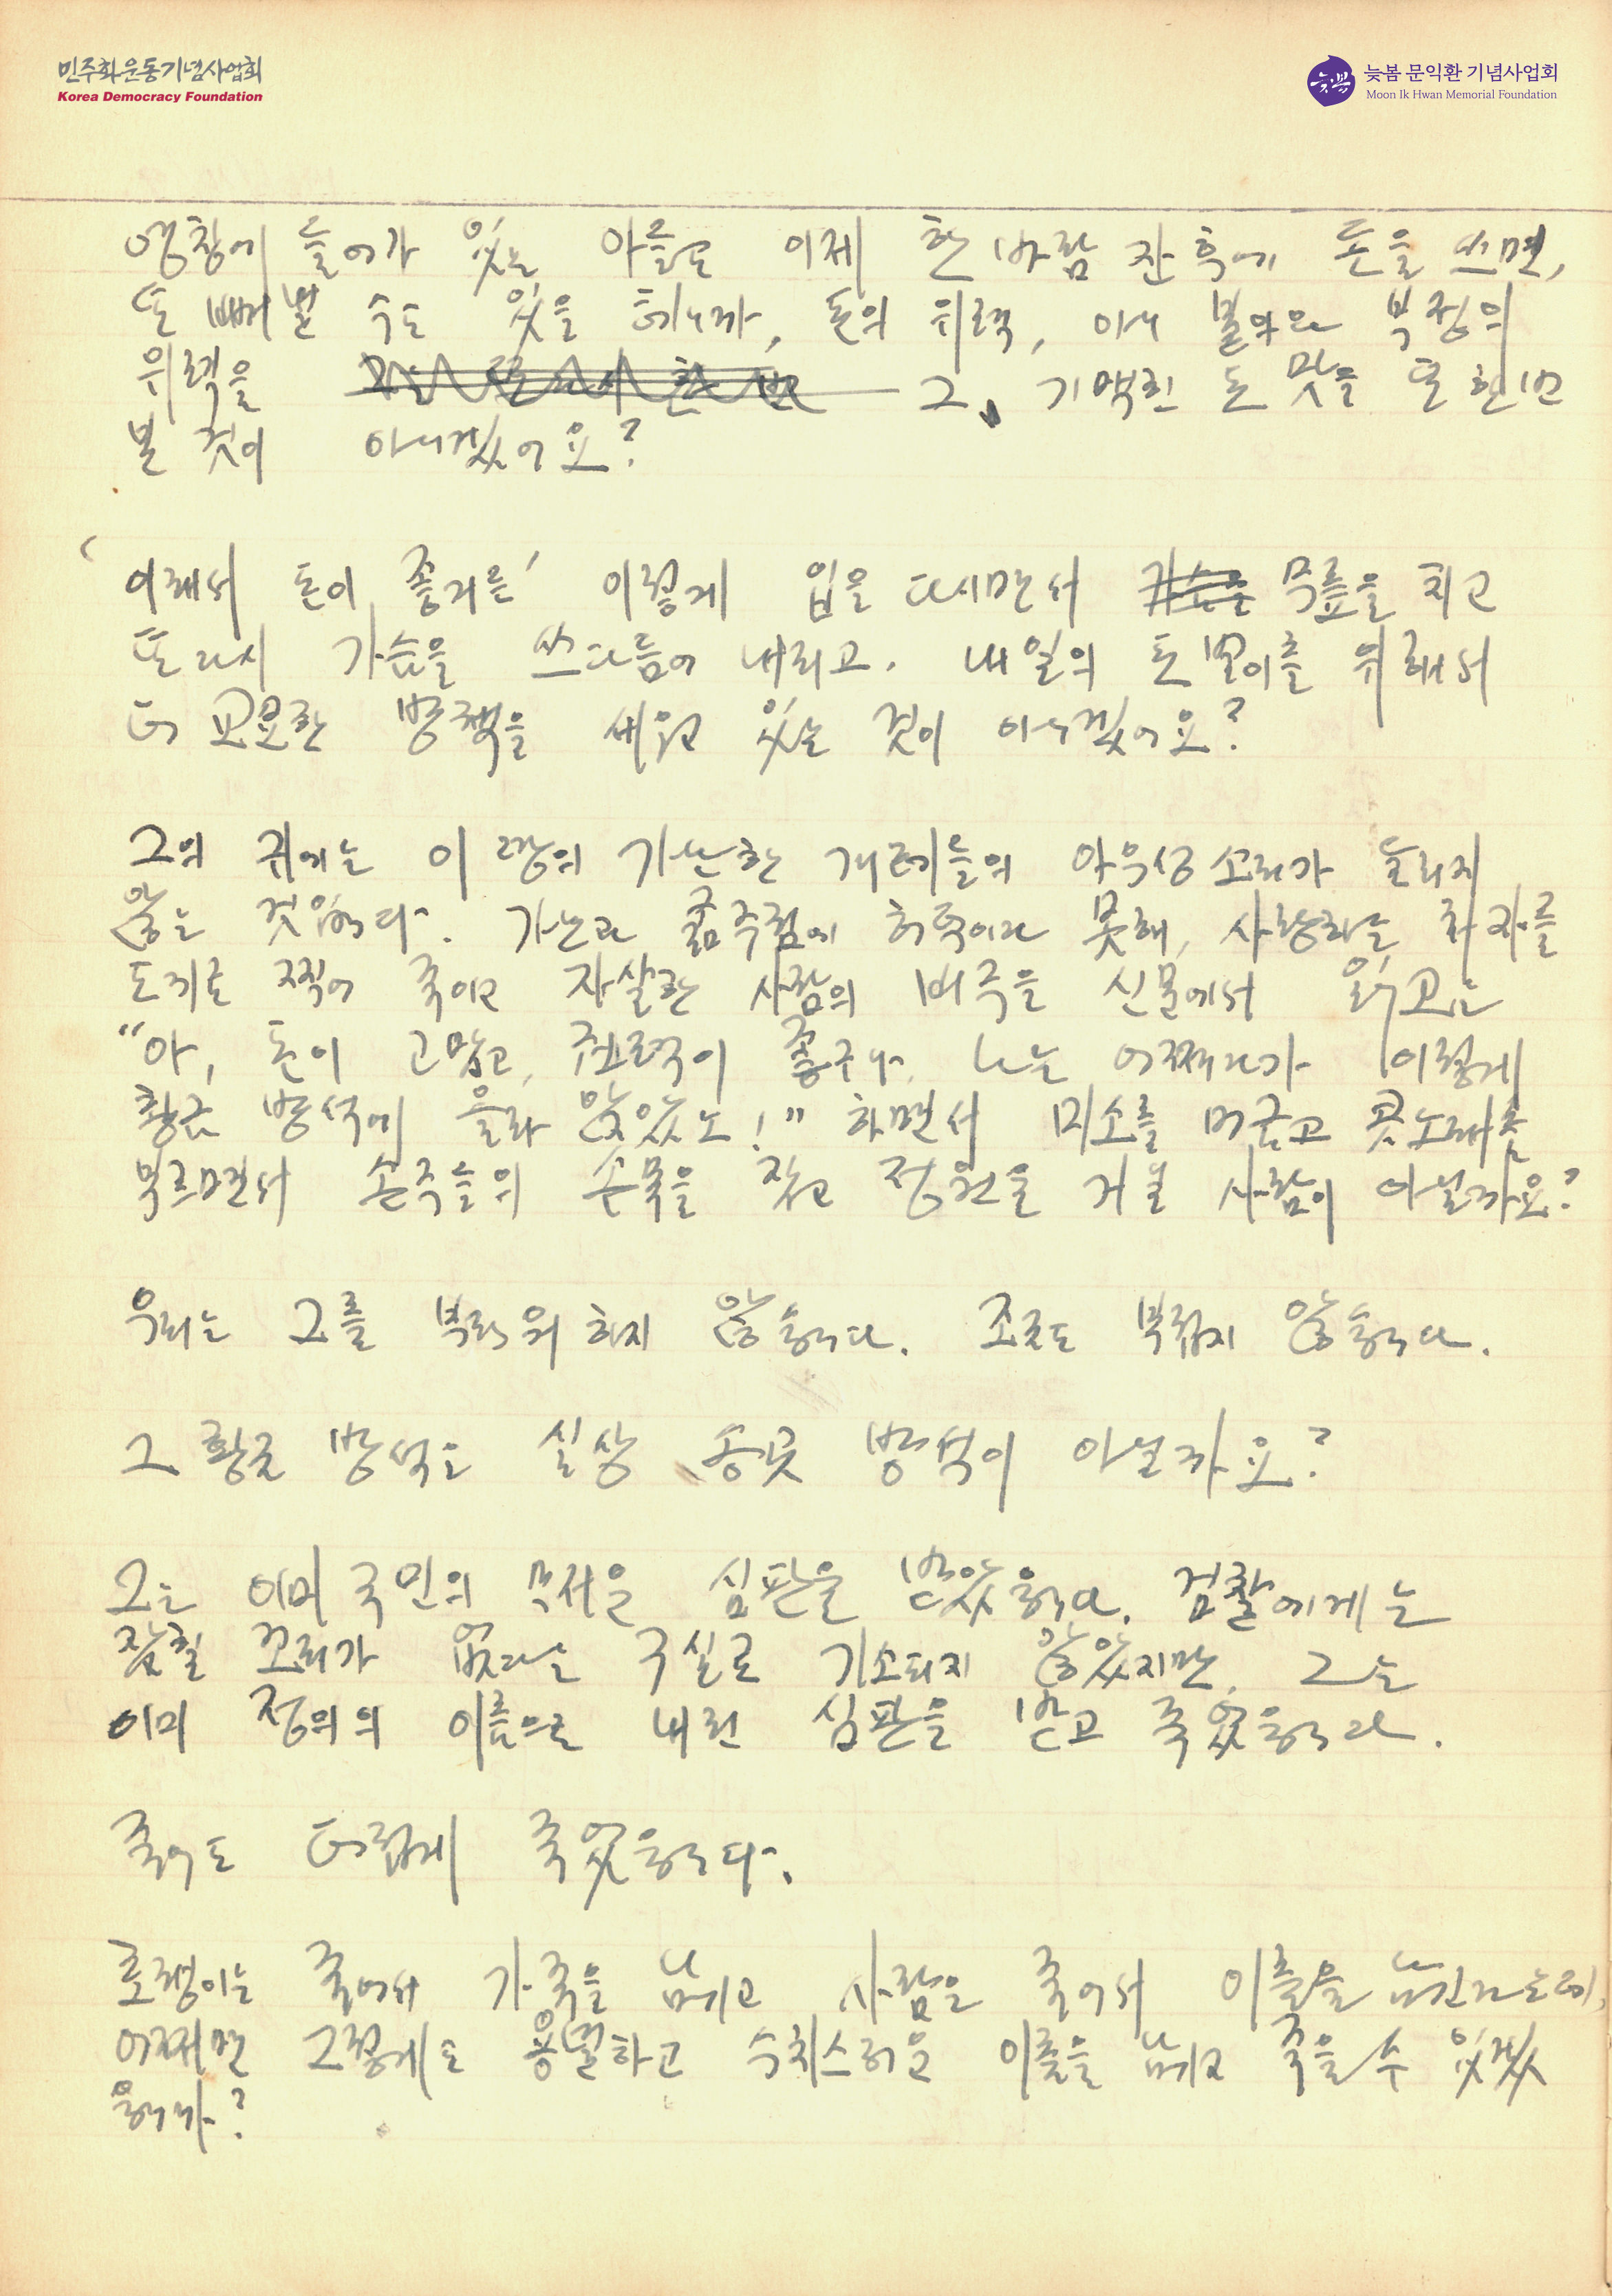 민주화운동기념사업회
Korea Democracy Foundation
늦봄 문익환 기념사업회
Moon Ik Hwan Memorial Foundation
영창에 들어가 있는 아들도 이제 한 바람 잔 후에 돈을 쓰면,
또 빼낼 수도 있을 테니까, 돈의 위력, 아니 불의와 부정의
위력을 그 기막힌 돈 맛을 또 한번
볼 것이 아니겠어요?
'이래서 돈이 좋거든' 이렇게 입을 다시면서 가슴을 무릎을 치고
또다시 가슴을 쓰다듬어 내리고. 내일의 돈벌이를 위해서
더 교묘한 방책을 세우고 있는 것이 아니겠어요?
그의 귀에는 이 땅의 가난한 겨레들의 아우성 소리가 들리지
않는 것입니다. 가난과 굶주림에 허덕이다 못해, 사랑하는 처자를
도끼로 찍어 죽이고 자살한 사람의 비극을 신문에서 읽고는
"아, 돈이 고맙고, 권력이 좋구나. 나는 어쩌다가 이렇게
황금 방석에 올라 앉았노!" 하면서 미소를 머금고 콧노래를
부르면서 손주들의 손목을 잡고 정원을 거닐 사람이 아닐까요?
우리는 그를 부러워하지 않습니다. 조금도 부럽지 않습니다.
그 황금 방석은 실상 송곳 방석이 아닐까요?
그는 이미 국민의 심판을 받았읍니다. 검찰에게는
잡힐 꼬리가 없다는 구실로 기소되지 않았지만, 그는
이미 정의의 이름으로 내린 심판을 받고 죽었읍니다.
죽어도 더럽게 죽었읍니다.
호랭이는 죽어서 가죽을 남기고 사람은 죽어서 이름을 남긴다는데,
어쩌면 그렇게도 용렬하고 수치스러운 이름을 남기고 죽을 수 있겠
읍니까?